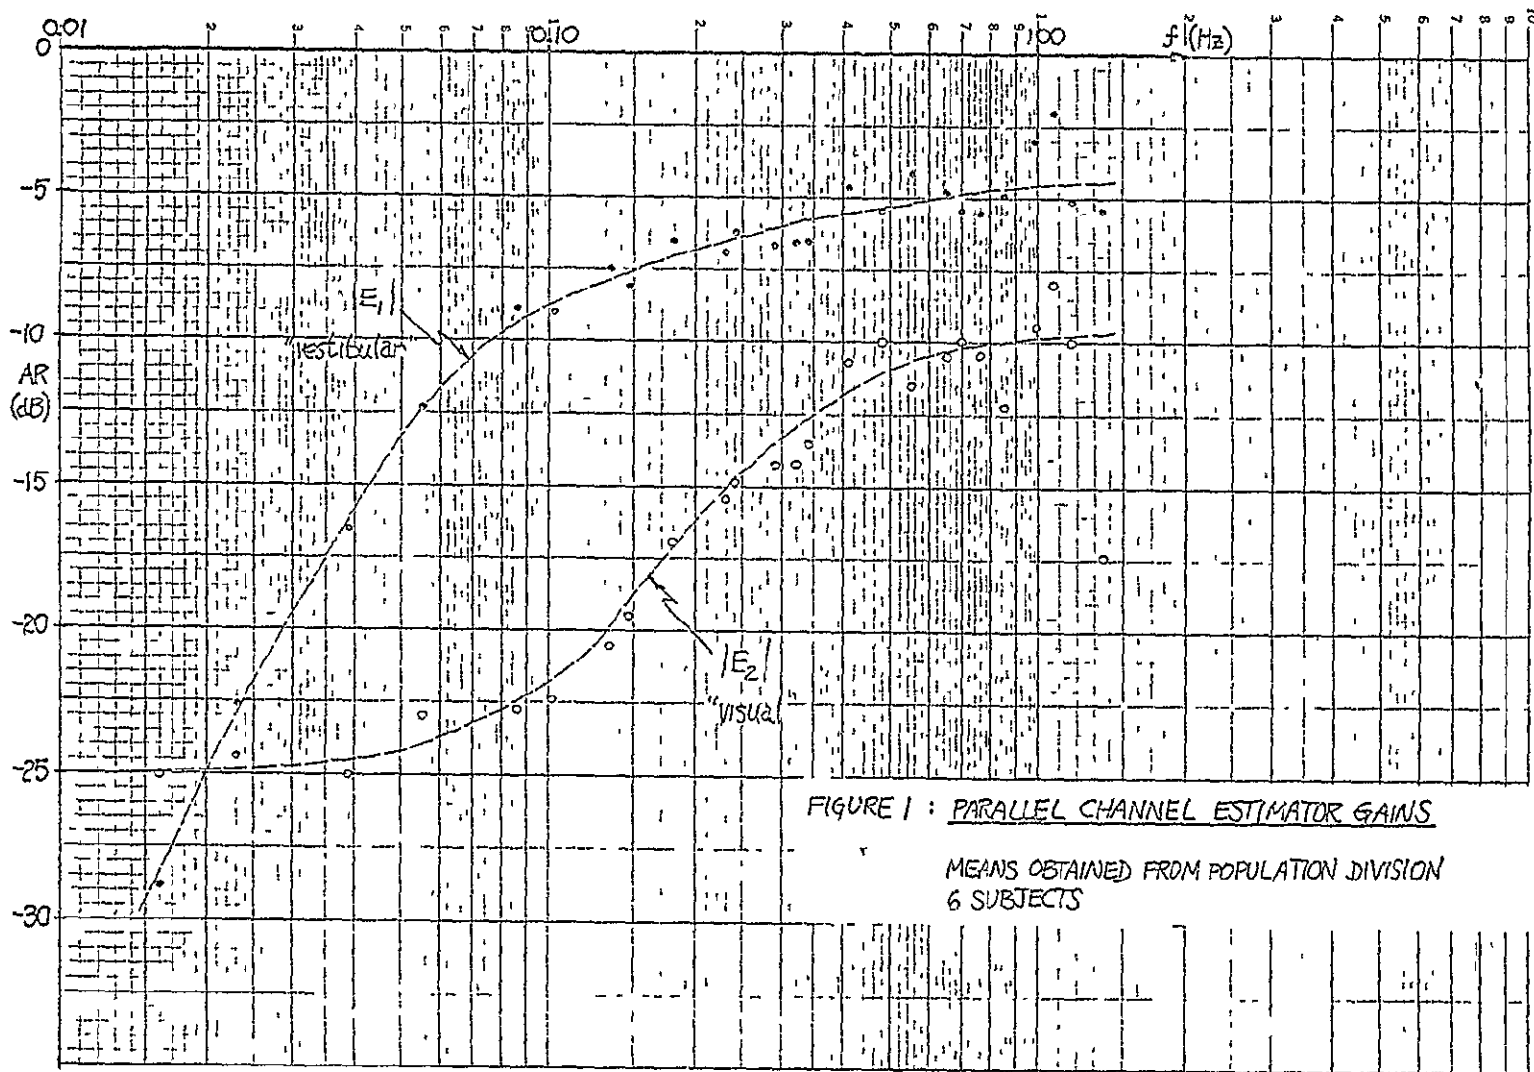 0.01 2 3 4 5 6 7 8 9 0.10 2 3 4 5 6 7 8 9 1.00 2 f (Hz) 3 4 5 6 7 8 9 10
0
-5
-10
AR
(dB)
-15
-20
-25
-30
|E1|
"vestibular"
|E2|
"visual"
FIGURE 1 : PARALLEL CHANNEL ESTIMATOR GAINS
MEANS OBTAINED FROM POPULATION DIVISION
6 SUBJECTS